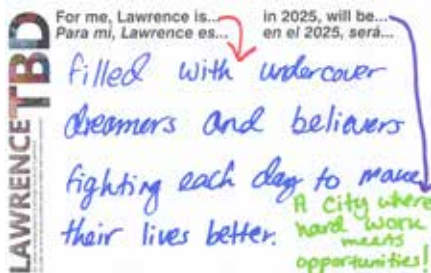 LAWRENCE TBD
For me, Lawrence is...
Para mi, Lawrence es...
in 2025, will be...
en el 2025, será...
filled with undercover
dreamers and believers
fighting each day to make
their lives better.
A city where
hard work
meets
opportunities!